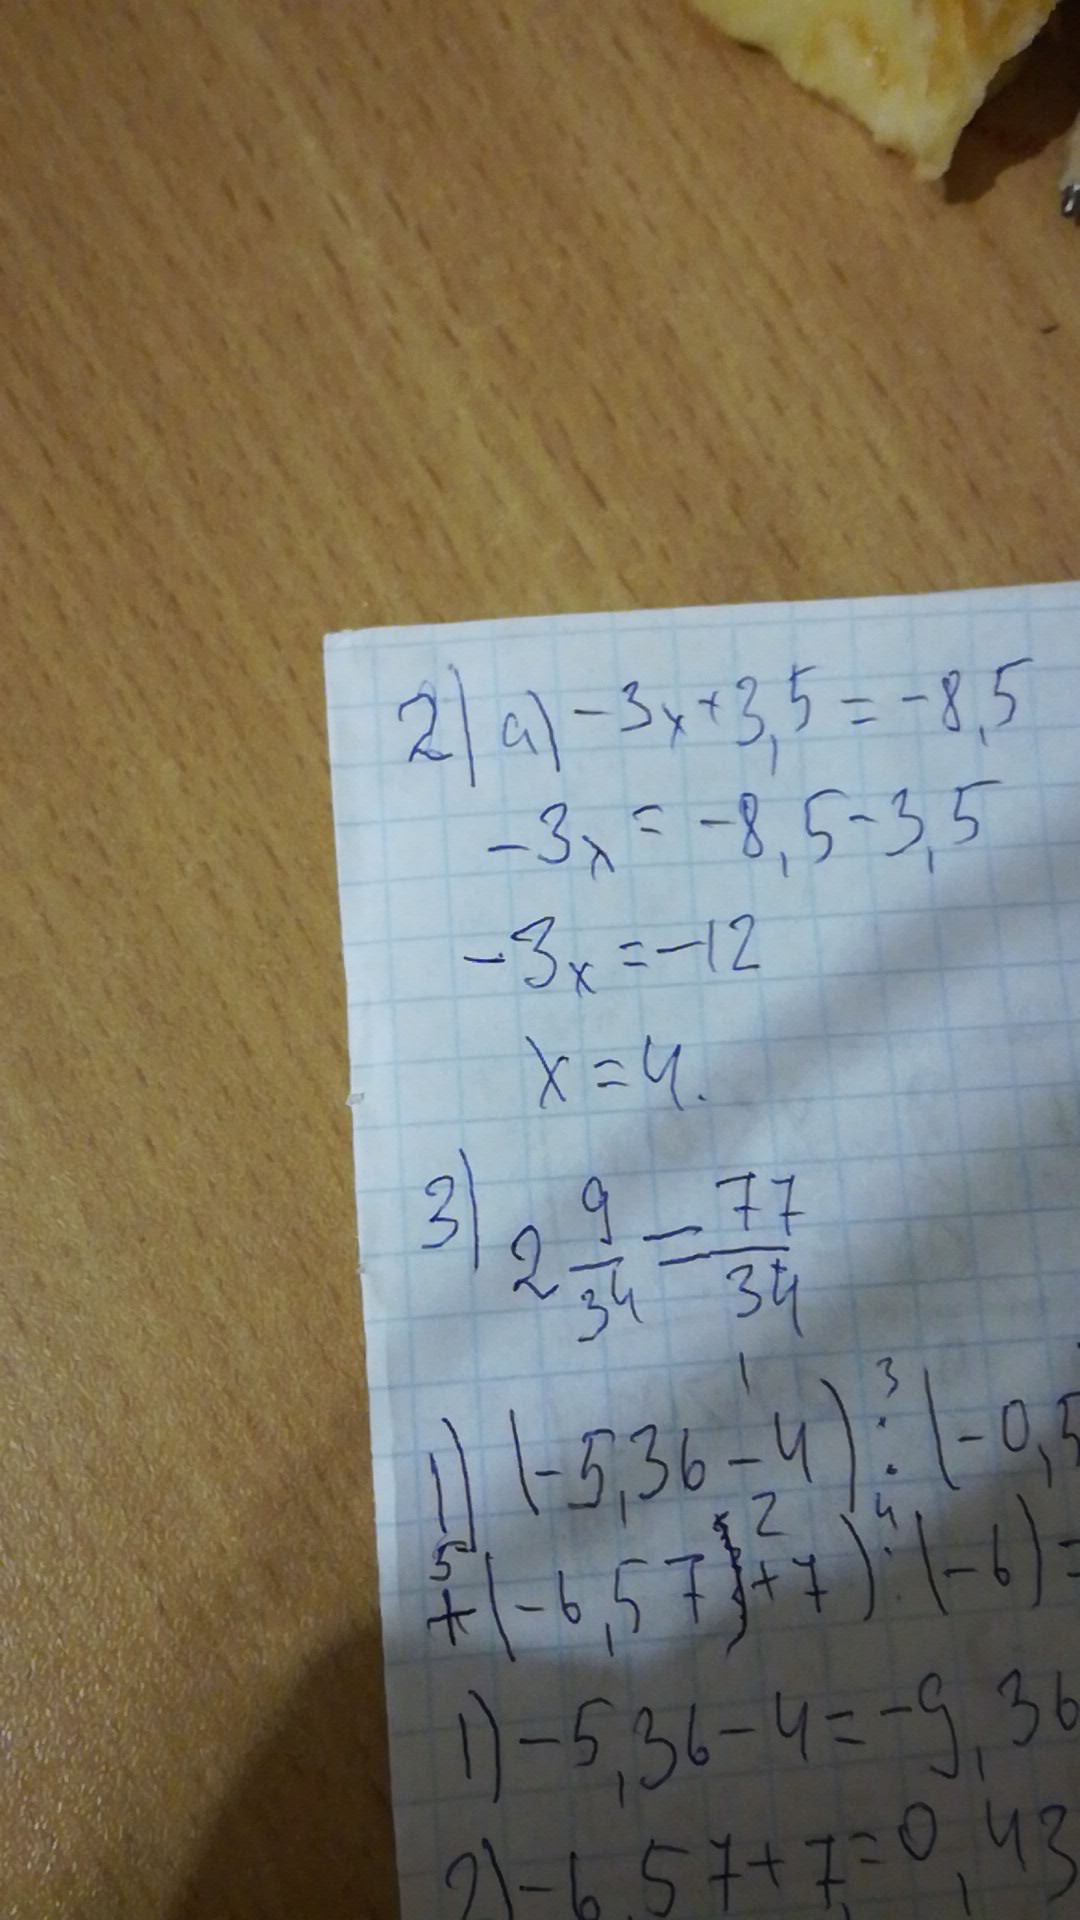 2) а) -3x+3,5=-8,5
-3x=-8,5-3,5
-3x=-12
x=4.
3) 2 9/34=77/34
1 3
1) (-5,36-4):(-0,5
5 2 4
+(-6,57+7):(-6)=
1) -5,36-4=-9,36
2) -6,57+7=0,43